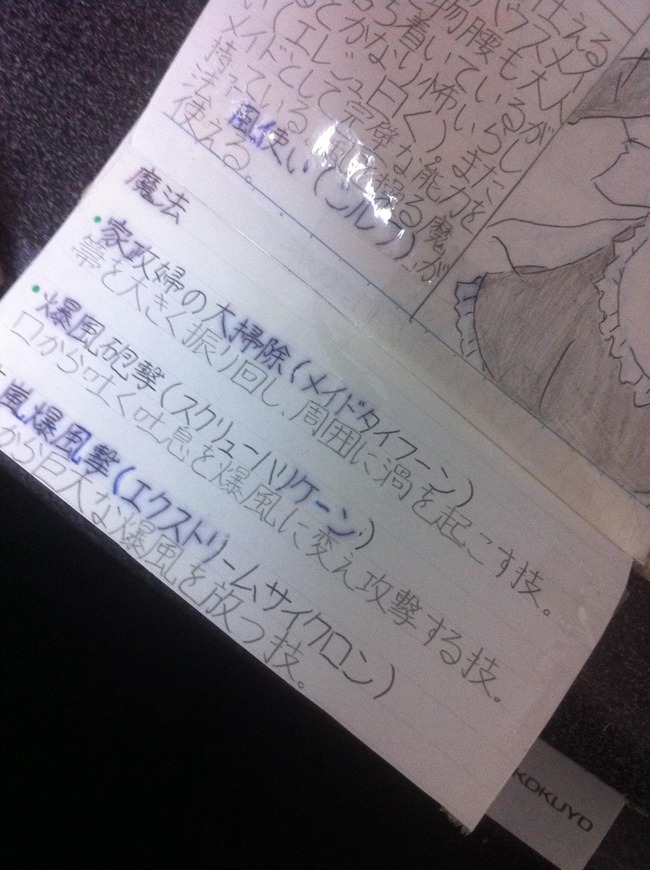 仕える
ハウスメイ
物腰も大人
落ち着いているが
かなり怖いらし
い(エレン曰く)。また
メイドとして完璧な能力を
持っている。風を操る魔
法 風使い(シルフ)が
使える。
魔法
・家政婦の大掃除(メイドタイフーン)
箒を大きく振り回し、周囲に渦を起こす技。
・爆風砲撃(スクリューハリケーン)
口から吐く吐息を爆風に変え攻撃する技。
嵐爆風撃(エクストリームサイクロン)
から巨大な爆風を放つ技。
KOKUYO